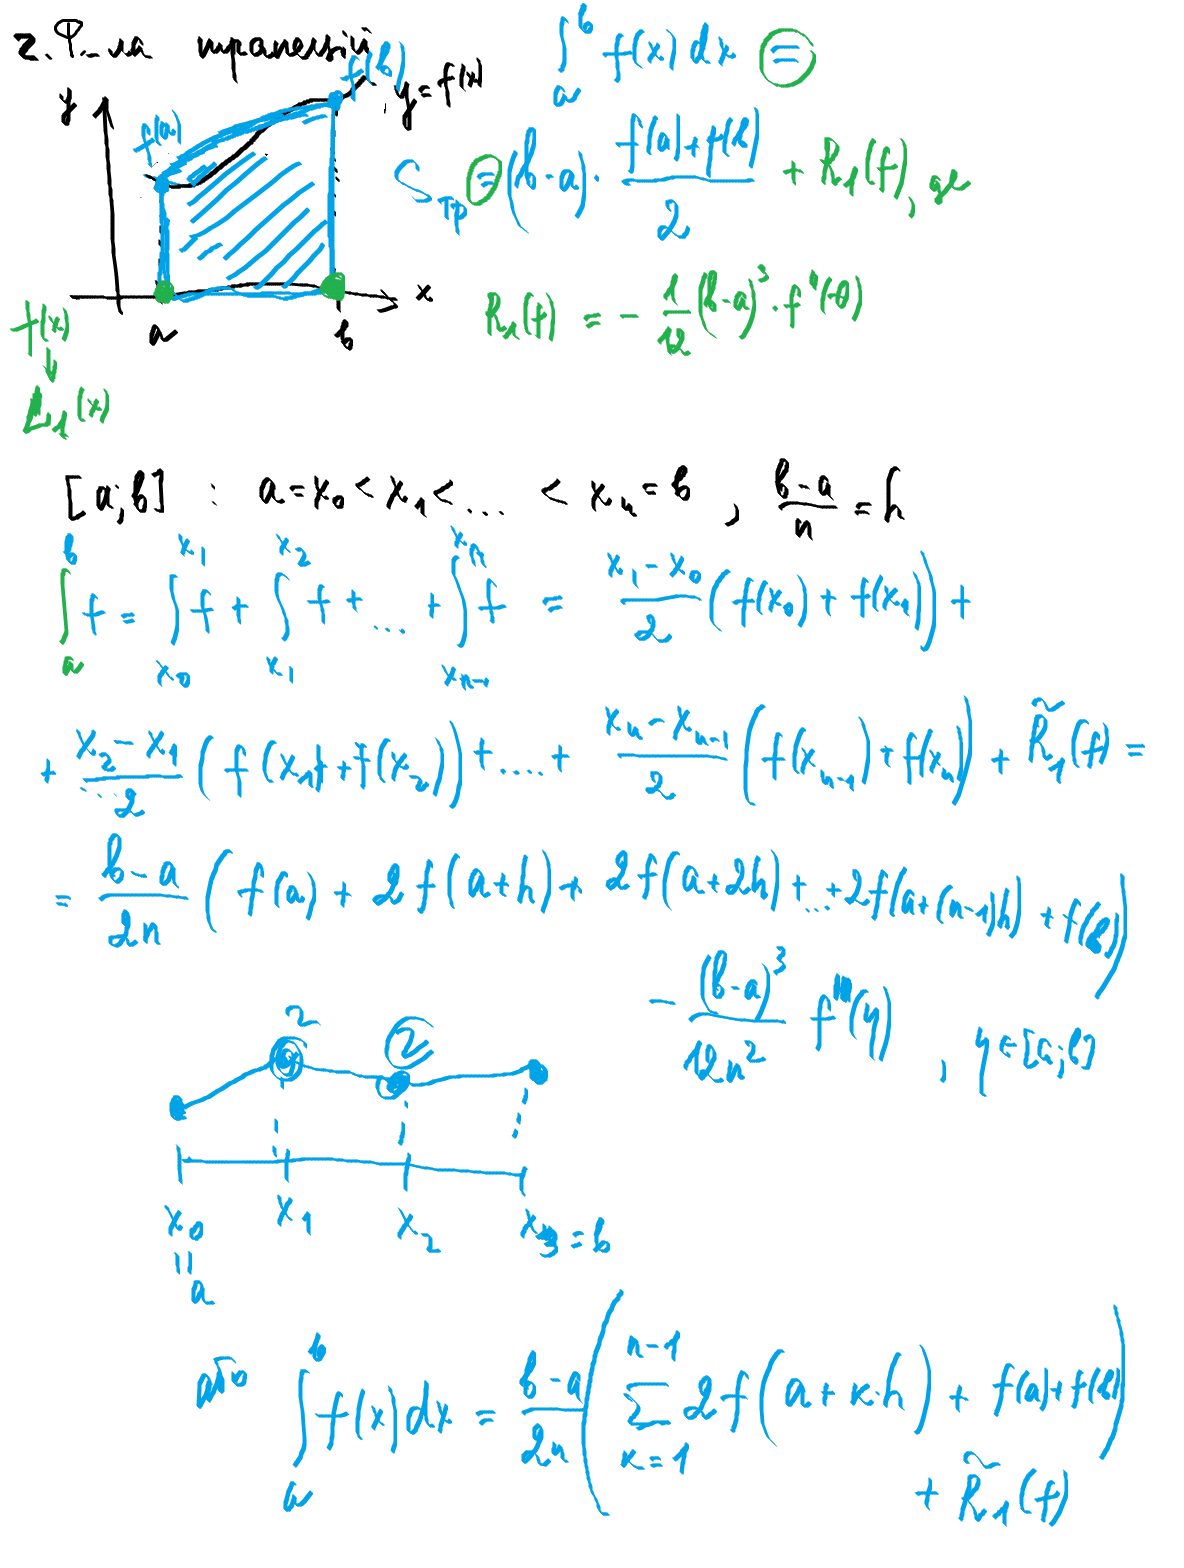 2. Ф-ла трапецій
∫_a^b f(x) dx =
y f(a) f(b) y = f(x)
S_тр = (b-a) · (f(a)+f(b))/2 + R_1(f), де
a b x
R_1(f) = - 1/12 (b-a)^3 · f''(θ)
f(x)
↓
L_1(x)
[a;b] : a = x_0 < x_1 < ... < x_n = b , (b-a)/n = h
∫_a^b f = ∫_{x_0}^{x_1} f + ∫_{x_1}^{x_2} f + ... + ∫_{x_{n-1}}^{x_n} f = (x_1 - x_0)/2 (f(x_0) + f(x_1)) +
+ (x_2 - x_1)/2 (f(x_1) + f(x_2)) + .... + (x_n - x_{n-1})/2 (f(x_{n-1}) + f(x_n)) + R̃_1(f) =
= (b-a)/2n (f(a) + 2f(a+h) + 2f(a+2h) + ... + 2f(a+(n-1)h) + f(b))
- (b-a)^3/12n^2 f''(η) , η ∈ [a;b]
2 2
x_0 x_1 x_2 x_3 = b
=
a
або ∫_a^b f(x) dx = (b-a)/2n (∑_{k=1}^{n-1} 2f(a + k·h) + f(a)+f(b))
+ R̃_1(f)